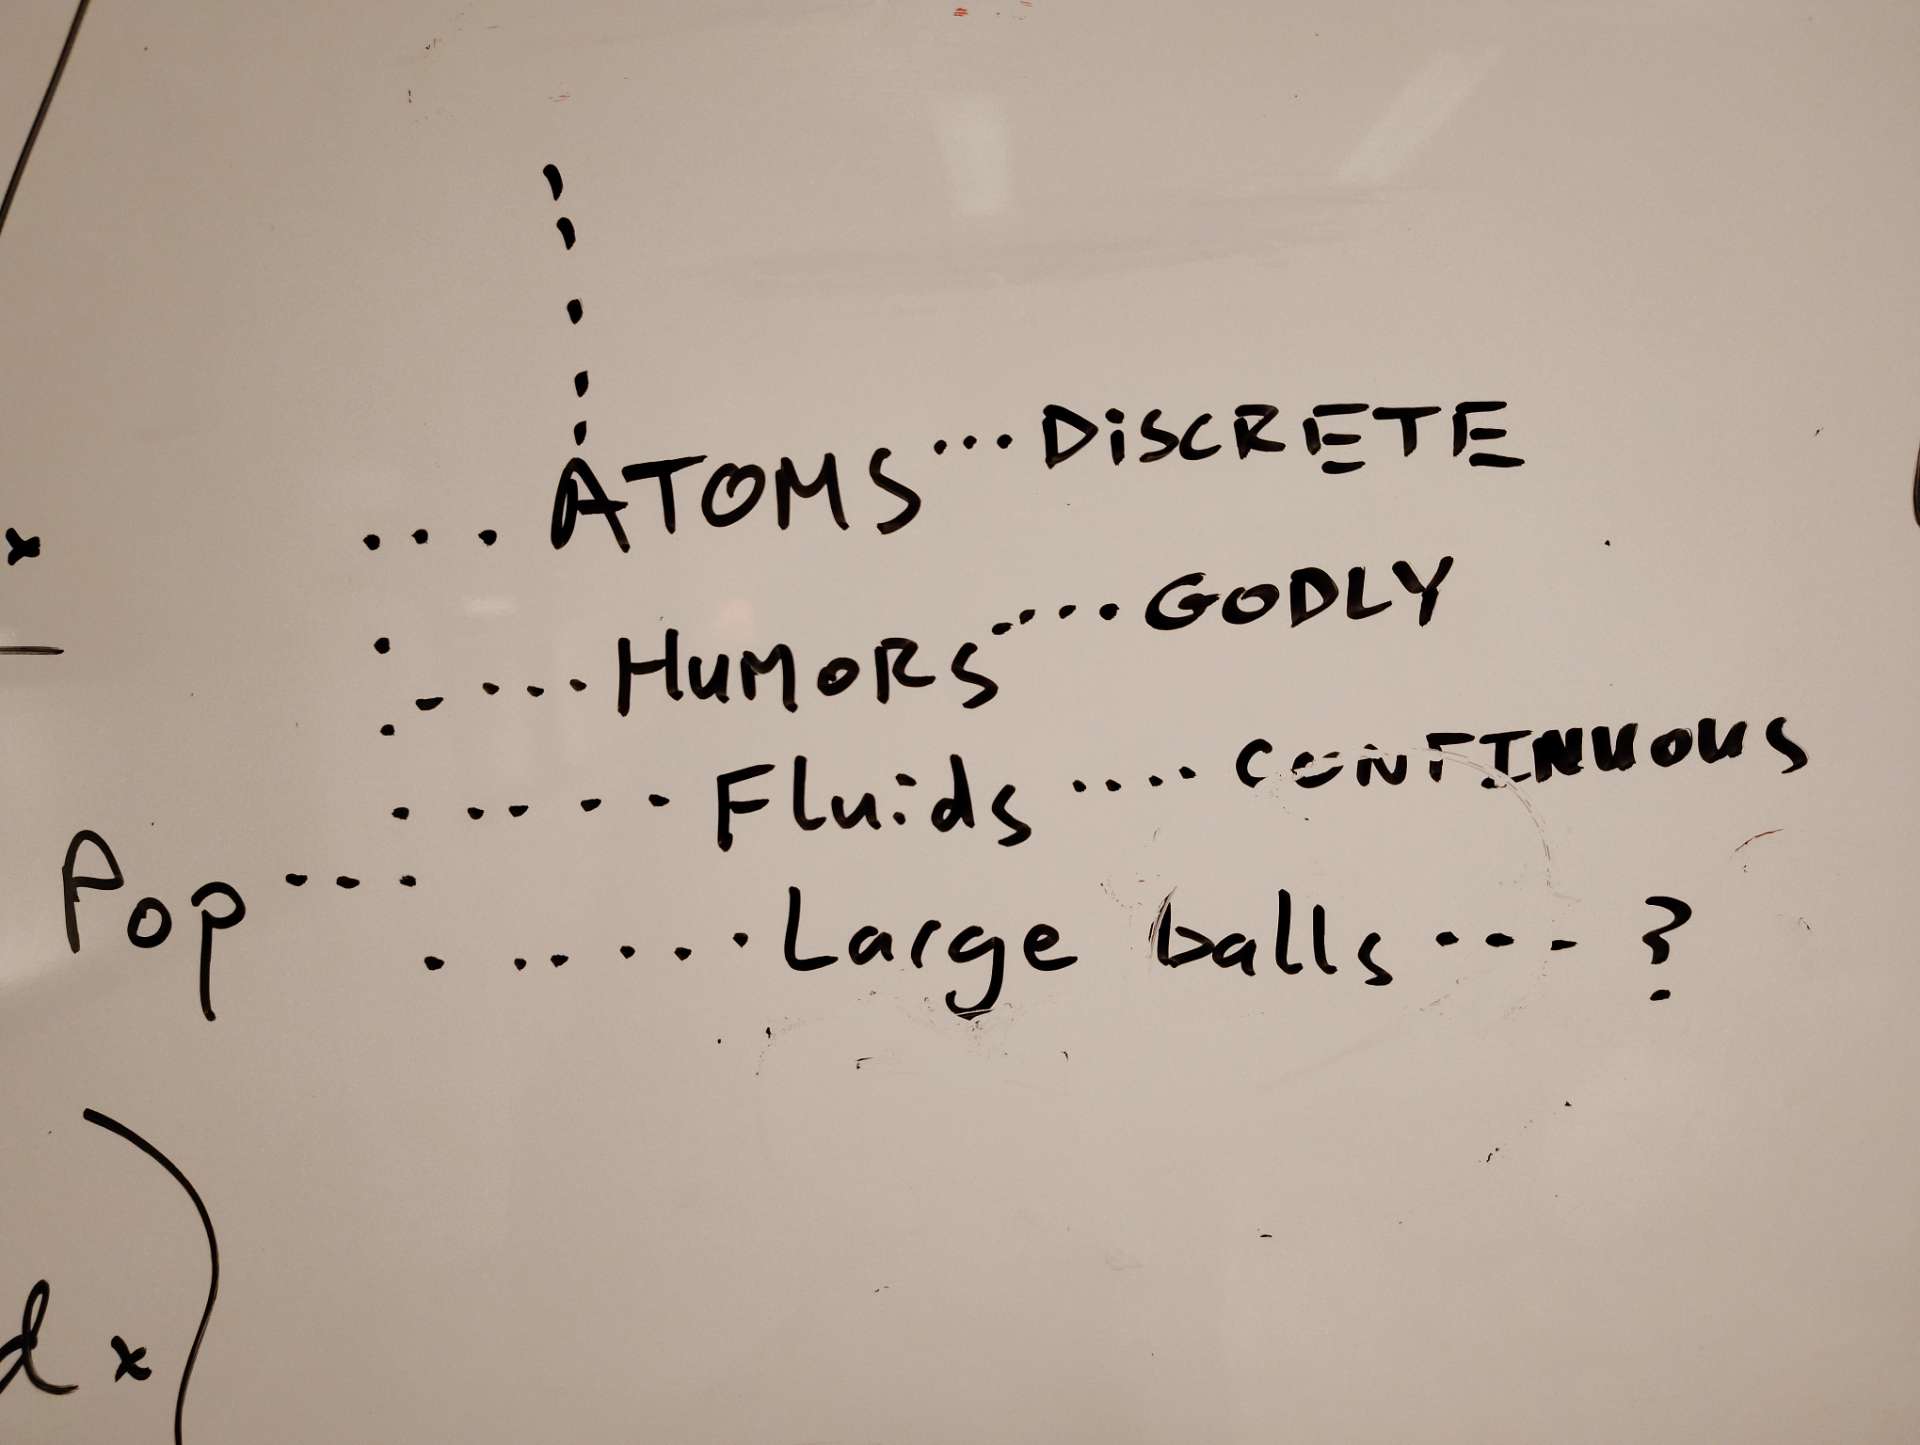 ATOMS ... DISCRETE
x ...
.... HUMORS .... GODLY
..... Fluids .... CONTINUOUS
Pop ...
...... Large balls --- ?
dx)